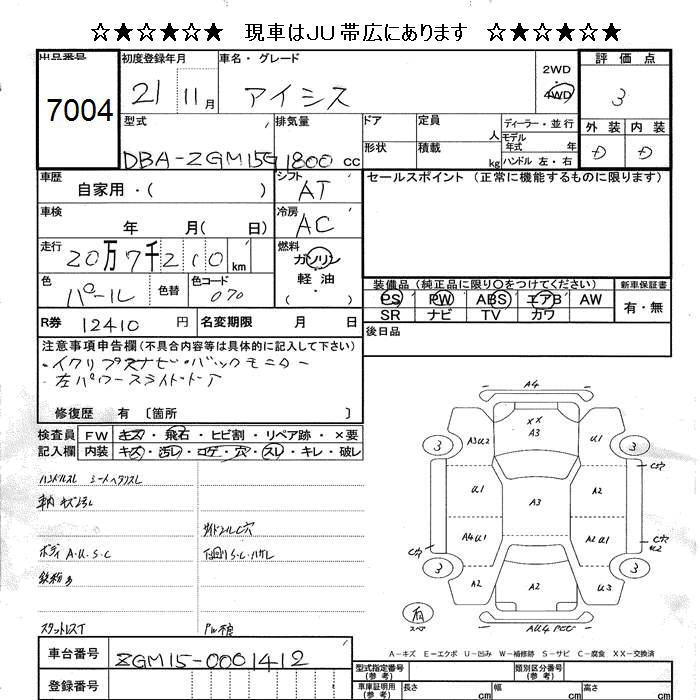 ☆★☆★☆★☆ 現車はJU帯広にあります ☆★☆★☆★☆
出品番号 7004
初度登録年月 21 11月
車名・グレード アイシス
2WD 4WD
評価点 3
外装 D 内装 D
型式 DBA-ZGM15G
排気量 1800 cc
ドア 形状
定員 人
積載 kg
ディーラー・並行
モデル年式 年
ハンドル 左・右
車歴 自家用・( )
シフト AT
セールスポイント (正常に機能するものに限ります)
車検 年 月( 日)
冷房 AC
走行 20万7千210 km
燃料 ガソリン 軽油 ( ・ )
色 パール 色替 色コード 070
装備品 (純正品に限り○をつけてください)
PS PW ABS エアB AW
SR ナビ TV カワ
新車保証書 有・無
R券 12410 円 名変期限 月 日
後日品
注意事項申告欄(不具合内容等は具体的に記入して下さい)
・イクリプスナビ・バックモニター
・左パワースライドドア
修復歴 有 〔箇所 〕
検査員記入欄
FW キズ・飛石・ヒビ割・リペア跡・×要
内装 キズ・汚レ・コゲ・穴・スレ・キレ・破レ
ハンドルスレ シートヘタリスレ
車内キズ汚レ
ボディ A.U.S.C
下回りS.C.ハガレ
スタッドレスT
A4
A3U2 XX A3 U1
3 3
C穴
U1 A3 A2
A4U1 A2U1
C穴 C穴 U2
3 3
A2 A2 U3
有 スペア
A-キズ E-エクボ U-凹み W-補修跡 S-サビ C-腐食 XX-交換済
車台番号 ZGM15-0001412
登録番号
型式指定番号 (参考) 類別区分番号 (参考)
車庫証明用 (参考) 長さ cm 幅 cm 高さ cm